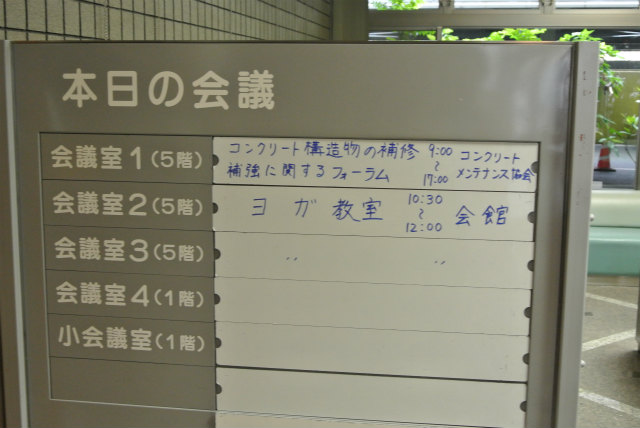 本日の会議
会議室1(5階) コンクリート構造物の補修 9:00 コンクリート
補強に関するフォーラム 〜17:00 メンテナンス協会
会議室2(5階) ヨガ教室 10:30〜12:00 会館
会議室3(5階) 〃 〃
会議室4(1階)
小会議室(1階)